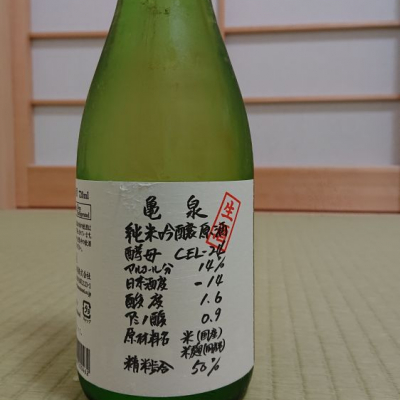 亀泉
生酒
純米吟醸原酒
酵母 CEL-24
アルコール分 14%
日本酒度 -14
酸度 1.6
アミノ酸 0.9
原材料名 米(国産)
米麹(国産米)
精米歩合 50%
720ml